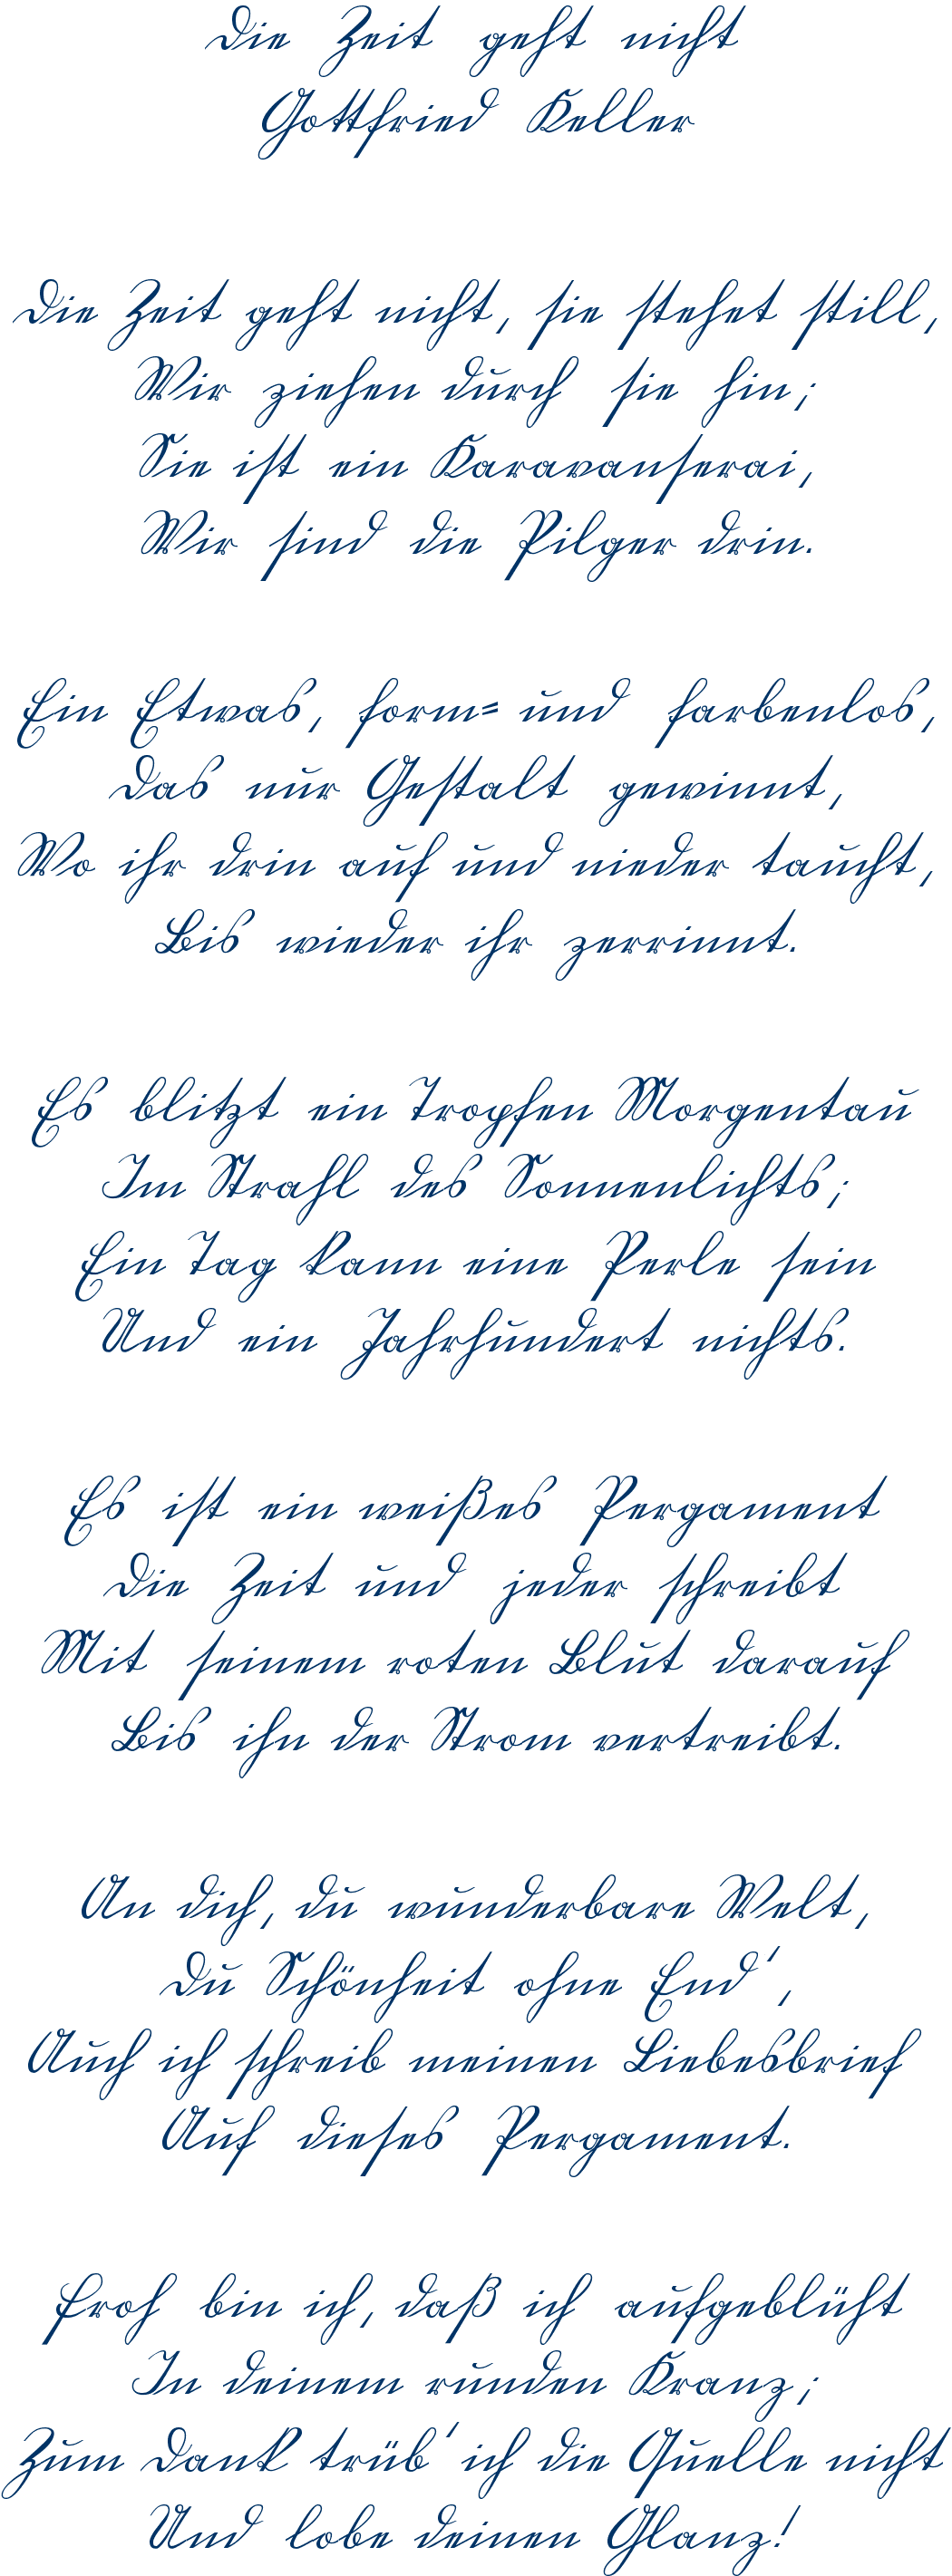 Die Zeit geht nicht
Gottfried Keller
Die Zeit geht nicht, sie stehet still,
Wir ziehen durch sie hin;
Sie ist ein Karavanserai,
Wir sind die Pilger drin.
Ein Etwas, form= und farbenlos,
Das nur Gestalt gewinnt,
Wo ihr drin auf und nieder taucht,
Bis wieder ihr zerrinnt.
Es blitzt ein Tropfen Morgentau
Im Strahl des Sonnenlichts;
Ein Tag kann eine Perle sein
Und ein Jahrhundert nichts.
Es ist ein weißes Pergament
Die Zeit und jeder schreibt
Mit seinem roten Blut darauf
Bis ihn der Strom vertreibt.
An dich, du wunderbare Welt,
Du Schönheit ohne End',
Auch ich schreib meinen Liebesbrief
Auf dieses Pergament.
Froh bin ich, daß ich aufgeblüht
In deinem runden Kranz;
Zum Dank trüb' ich die Quelle nicht
Und lobe deinen Glanz!